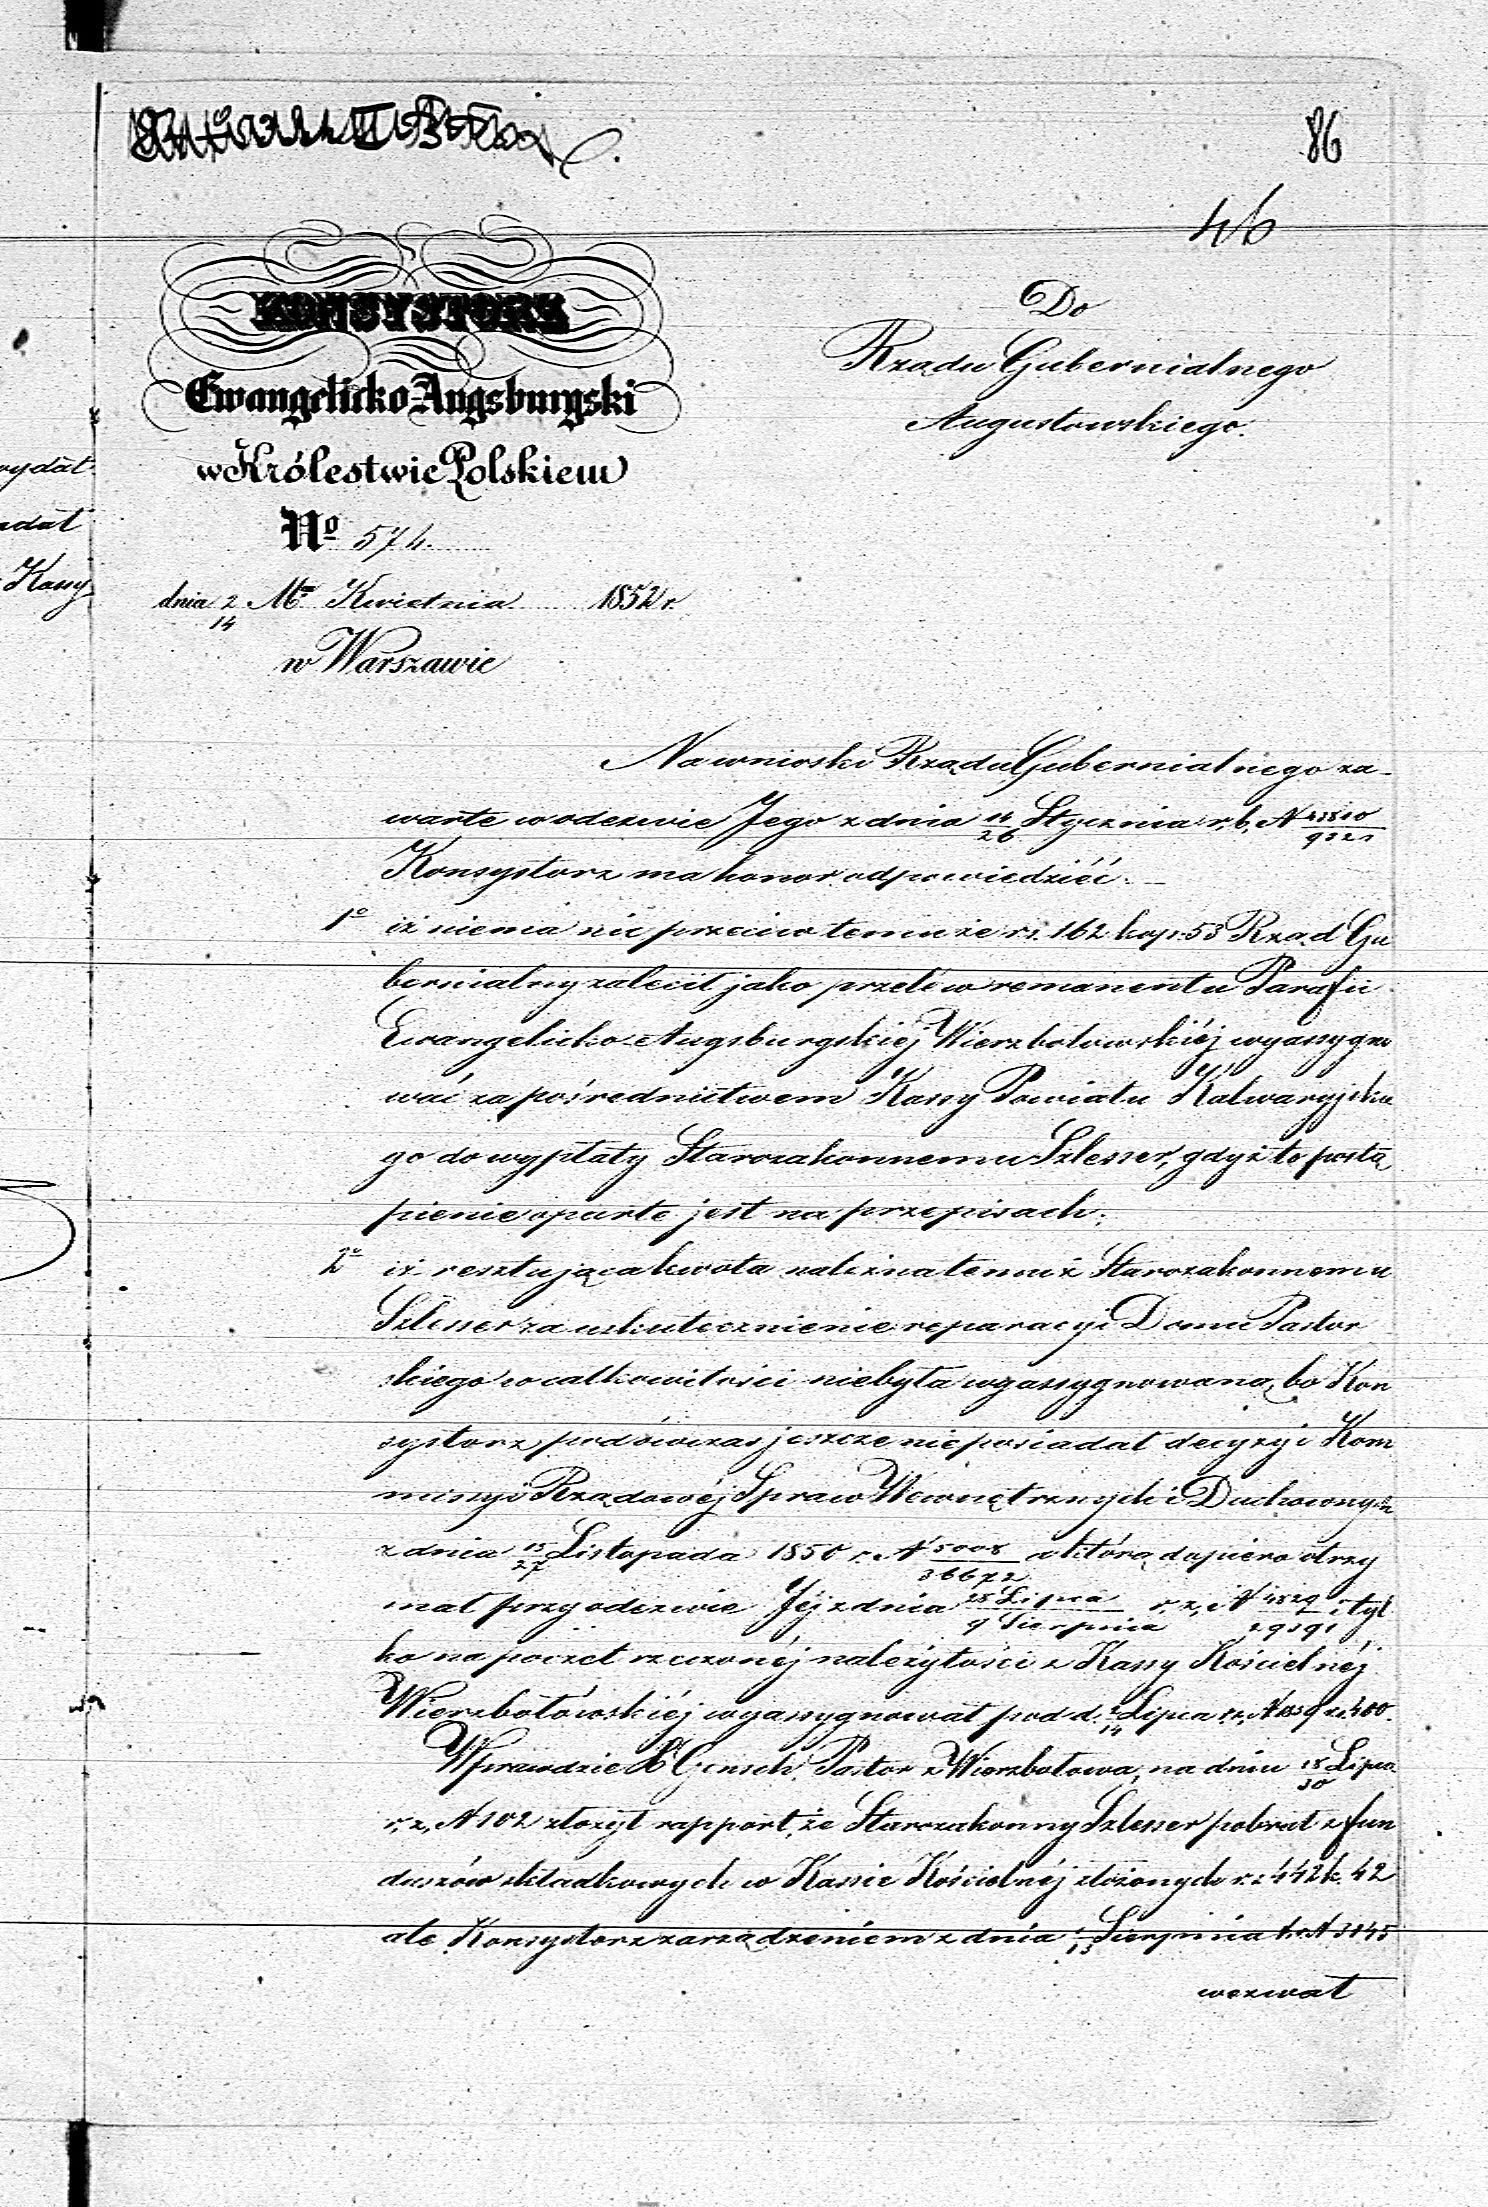 86
46
KONSYSTORZ
Ewangelicko-Augsburgski
w Królestwie Polskiem
No 574.
dnia 2/14 Ma Kwietnia 1852 r.
w Warszawie
Do
Rządu Gubernialnego
Augustowskiego.
Na wnioski Rządu Gubernialnego za-
warte w odezwie Jego z dnia 14/26 Stycznia r. b. N
Konsystorz ma honor odpowiedzieć. —
1o iż niema nic przeciw temu że rs. 162 kop. 53 Rząd Gu
bernialny zalecił jako przelew remanentu Parafii
Ewangelicko-Augsburgskiéj Wierzbołowskiéj wyassygno
wać za pośrednictwem Kassy Powiatu Kalwaryjskie
go do wypłaty Starozakonnemu Szlesser, gdyż to postą
pienie oparte jest na przepisach;
2o iż resztująca kwota należna temuż Starozakonnemu
Szlesser za uskutecznienie reparacyi Domu Pastor
skiego w całkowitości niebyła wyassygnowana, bo Kon
systorz podówczas jeszcze nieposiadał decyzyi Kom
missyi Rządowéj Spraw Wewnętrznych i Duchownych
z dnia 15/27 Listopada 1850 r. N 5008/36672 a którą dopiero otrzy
mał przy odezwie Jéj z dnia 28 Lipca/9 Sierpnia r. z. N tyl
ko na poczet rzeczonéj należytości z Kassy Kościelnéj
Wierzbołowskiéj wyassygnował pod d. 2/14 Lipca r. z. N rs. 400.
Wprawdzie X. Gensch Pastor z Wierzbołowa, na dniu 18/30 Lipca
r. z. N 102 złożył rapport, że Starozakonny Szlesser pobrał z fun
duszów składkowych w Kassie Kościelnéj złożonych rs. 442 k. 42
ale Konsystorz zarządzeniem z dnia 1/13 Sierpnia t. r. N 3145
wezwał